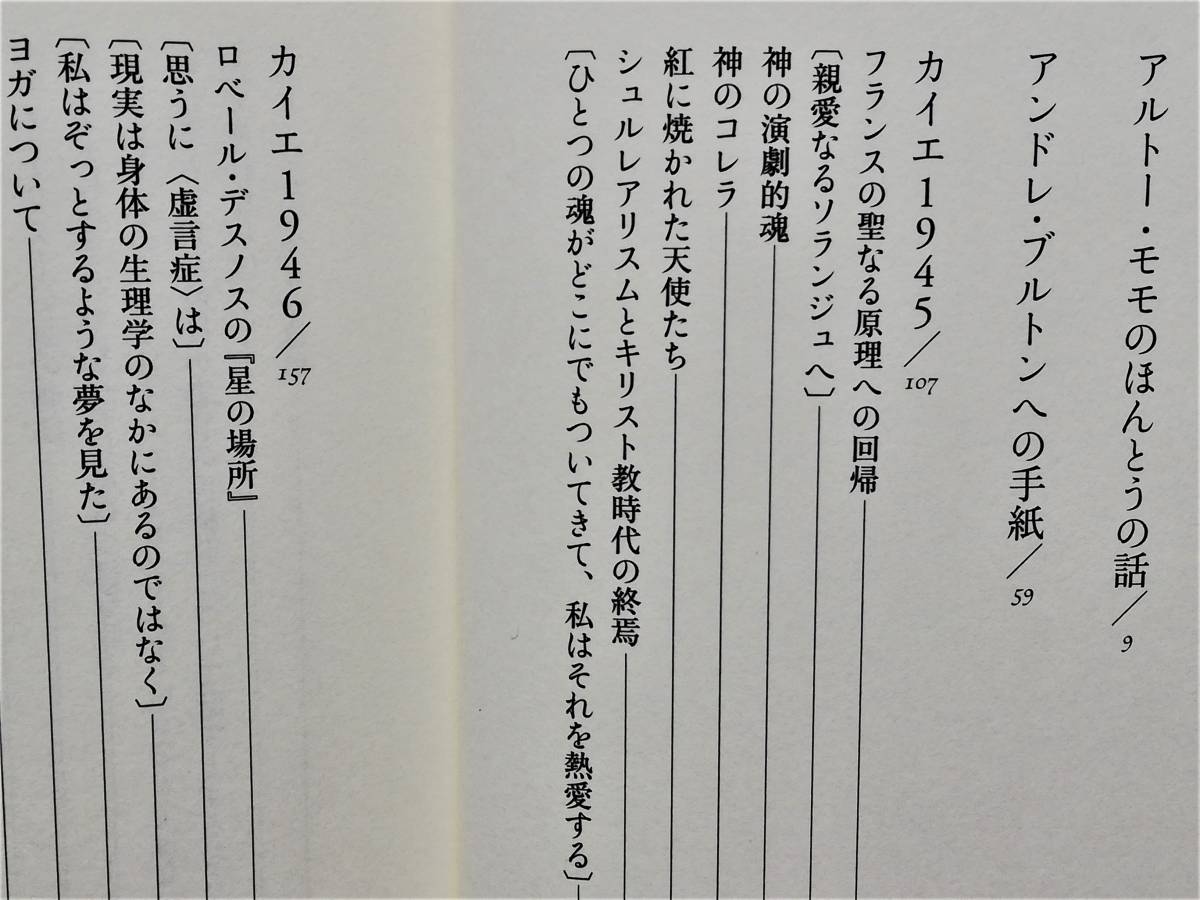 アルトー・モモのほんとうの話／9
アンドレ・ブルトンへの手紙／59
カイエ1945／107
フランスの聖なる原理への回帰
〔親愛なるソランジュへ〕
神の演劇的魂
神のコレラ
紅に焼かれた天使たち
シュルレアリスムとキリスト教時代の終焉
〔ひとつの魂がどこにでもついてきて、私はそれを熱愛する〕
カイエ1946／157
ロベール・デスノスの『星の場所』
〔思うに〈虚言症〉は〕
〔現実は身体の生理学のなかにあるのではなく〕
〔私はぞっとするような夢を見た〕
ヨガについて